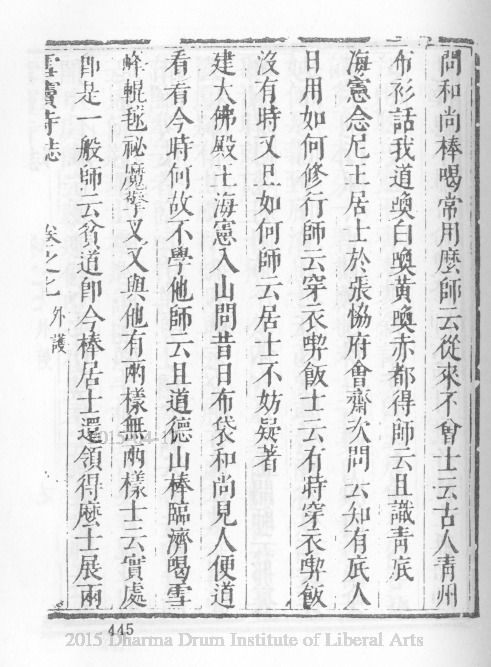 問和尚棒喝常用麼師云從來不曾士云古人青州
布衫話我道喚白喚黃喚赤都得師云且識青底
海憲念尼王居士於張恊府會齋次問云知有底人
日用如何修行師云穿衣喫飯士云有時穿衣喫飯
沒有時又且如何師云居士不妨疑著
建大佛殿王海憲入山問昔日布袋和尚見人便道
看看今時何故不學他師云且道德山棒臨濟喝雪
峰輥毬祕魔擎叉又與他有兩樣無兩樣士云實處
卽是一般師云貧道卽今棒居士還領得麼士展兩
雪竇寺誌 卷之七 外護
445
2015 Dharma Drum Institute of Liberal Arts